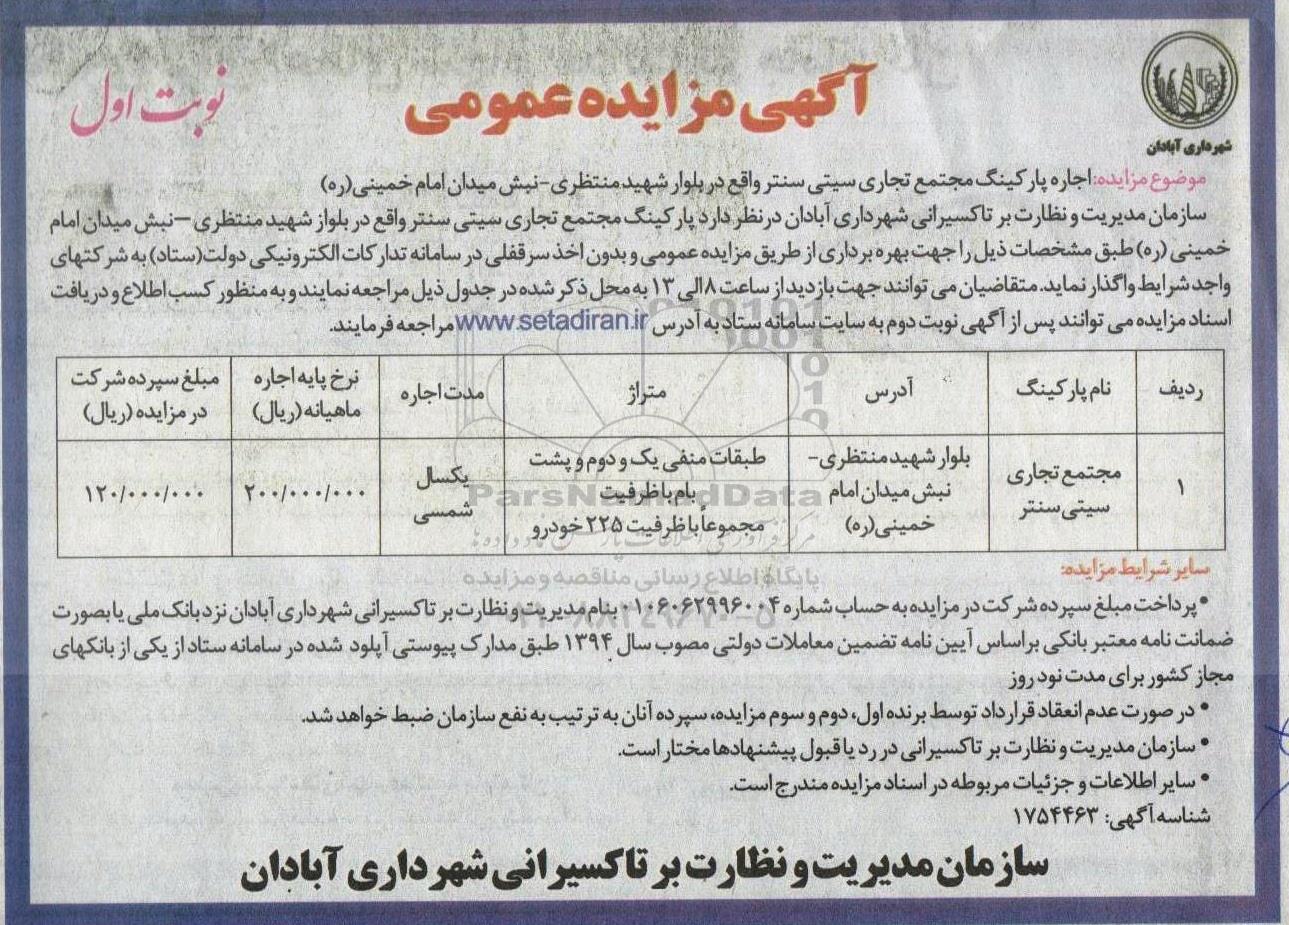 شهرداری آبادان
آگهی مزایده عمومی
نوبت اول
موضوع مزایده: اجاره پارکینگ مجتمع تجاری سیتی سنتر واقع در بلوار شهید منتظری-نبش میدان امام خمینی(ره)
سازمان مدیریت و نظارت بر تاکسیرانی شهرداری آبادان در نظر دارد پارکینگ مجتمع تجاری سیتی سنتر واقع در بلواز شهید منتظری –نبش میدان امام
خمینی (ره) طبق مشخصات ذیل را جهت بهره برداری از طریق مزایده عمومی و بدون اخذ سرقفلی در سامانه تدارکات الکترونیکی دولت(ستاد) به شرکتهای
واجد شرایط واگذار نماید. متقاضیان می توانند جهت بازدید از ساعت ۸ الی ۱۳ به محل ذکر شده در جدول ذیل مراجعه نمایند و به منظور کسب اطلاع و دریافت
اسناد مزایده می توانند پس از آگهی نوبت دوم به سایت سامانه ستاد به آدرس www.setadiran.ir مراجعه فرمایند.
ردیف	نام پارکینگ	آدرس	متراژ	مدت اجاره	نرخ پایه اجاره ماهیانه (ریال)	مبلغ سپرده شرکت در مزایده (ریال)
۱	مجتمع تجاری سیتی سنتر	بلوار شهید منتظری- نبش میدان امام خمینی(ره)	طبقات منفی یک و دوم و پشت بام با ظرفیت مجموعاً با ظرفیت ۲۲۵ خودرو	یکسال شمسی	۲۰۰/۰۰۰/۰۰۰	۱۲۰/۰۰۰/۰۰۰
ParsNamadData
پایگاه اطلاع رسانی مناقصه و مزایده
سایر شرایط مزایده:
• پرداخت مبلغ سپرده شرکت در مزایده به حساب شماره ۰۱۰۶۰۶۲۹۹۶۰۰۴ بنام مدیریت و نظارت بر تاکسیرانی شهرداری آبادان نزد بانک ملی یا بصورت
ضمانت نامه معتبر بانکی براساس آیین نامه تضمین معاملات دولتی مصوب سال ۱۳۹۴ طبق مدارک پیوستی آپلود شده در سامانه ستاد از یکی از بانکهای
مجاز کشور برای مدت نود روز
• در صورت عدم انعقاد قرارداد توسط برنده اول، دوم و سوم مزایده، سپرده آنان به ترتیب به نفع سازمان ضبط خواهد شد.
• سازمان مدیریت و نظارت بر تاکسیرانی در رد یا قبول پیشنهادها مختار است.
• سایر اطلاعات و جزئیات مربوطه در اسناد مزایده مندرج است.
شناسه آگهی: ۱۷۵۴۴۶۳
سازمان مدیریت و نظارت بر تاکسیرانی شهرداری آبادان